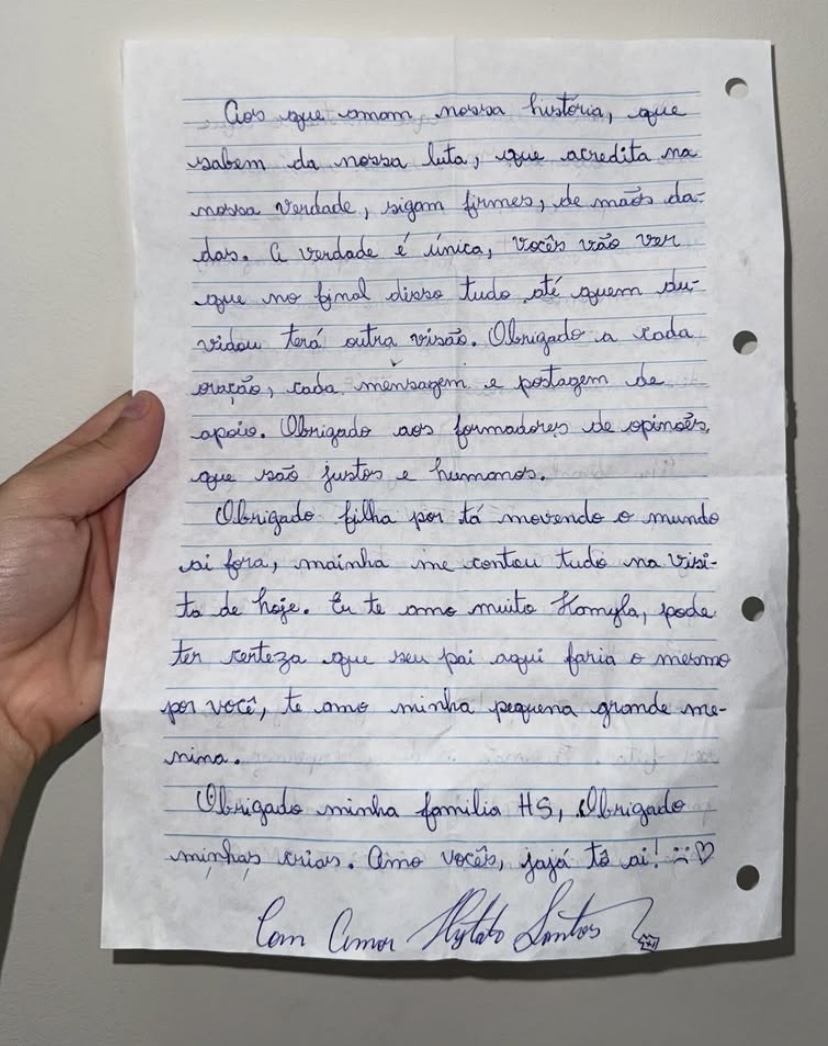 Aos que amam nossa história, que
sabem da nossa luta, que acredita na
nossa verdade, sigam firmes, de mãos da-
das. A verdade é única, vocês vão ver
que no final disso tudo até quem du-
vidou terá outra visão. Obrigado a cada
oração, cada mensagem e postagem de
apoio. Obrigado aos formadores de opinoẽs,
que são justos e humanos.
Obrigado filha por tá movendo o mundo
ai fora, mainha me contou tudo na visi-
ta de hoje. Eu te amo muito Kamyla, pode
ter certeza que seu pai aqui faria o mesmo
por você, te amo minha pequena grande me-
nina.
Obrigado minha família HS, Obrigado
minhas crias. Amo vocês, jajá tô ai! :(♡
Com Amor Hytalo Santos